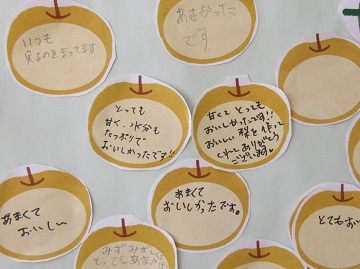 いつも
実るのをまってます
あまかった
です
とっても
甘く、水分も
たっぷりで
おいしかったです!!
甘くて とっても
おいしかったです!!
おいしい 梨を作って
くれて ありがとう
ございます。
あまくて
おいしい
あまくて
おいしかったです。
とてもお
みずみず
とってもあま